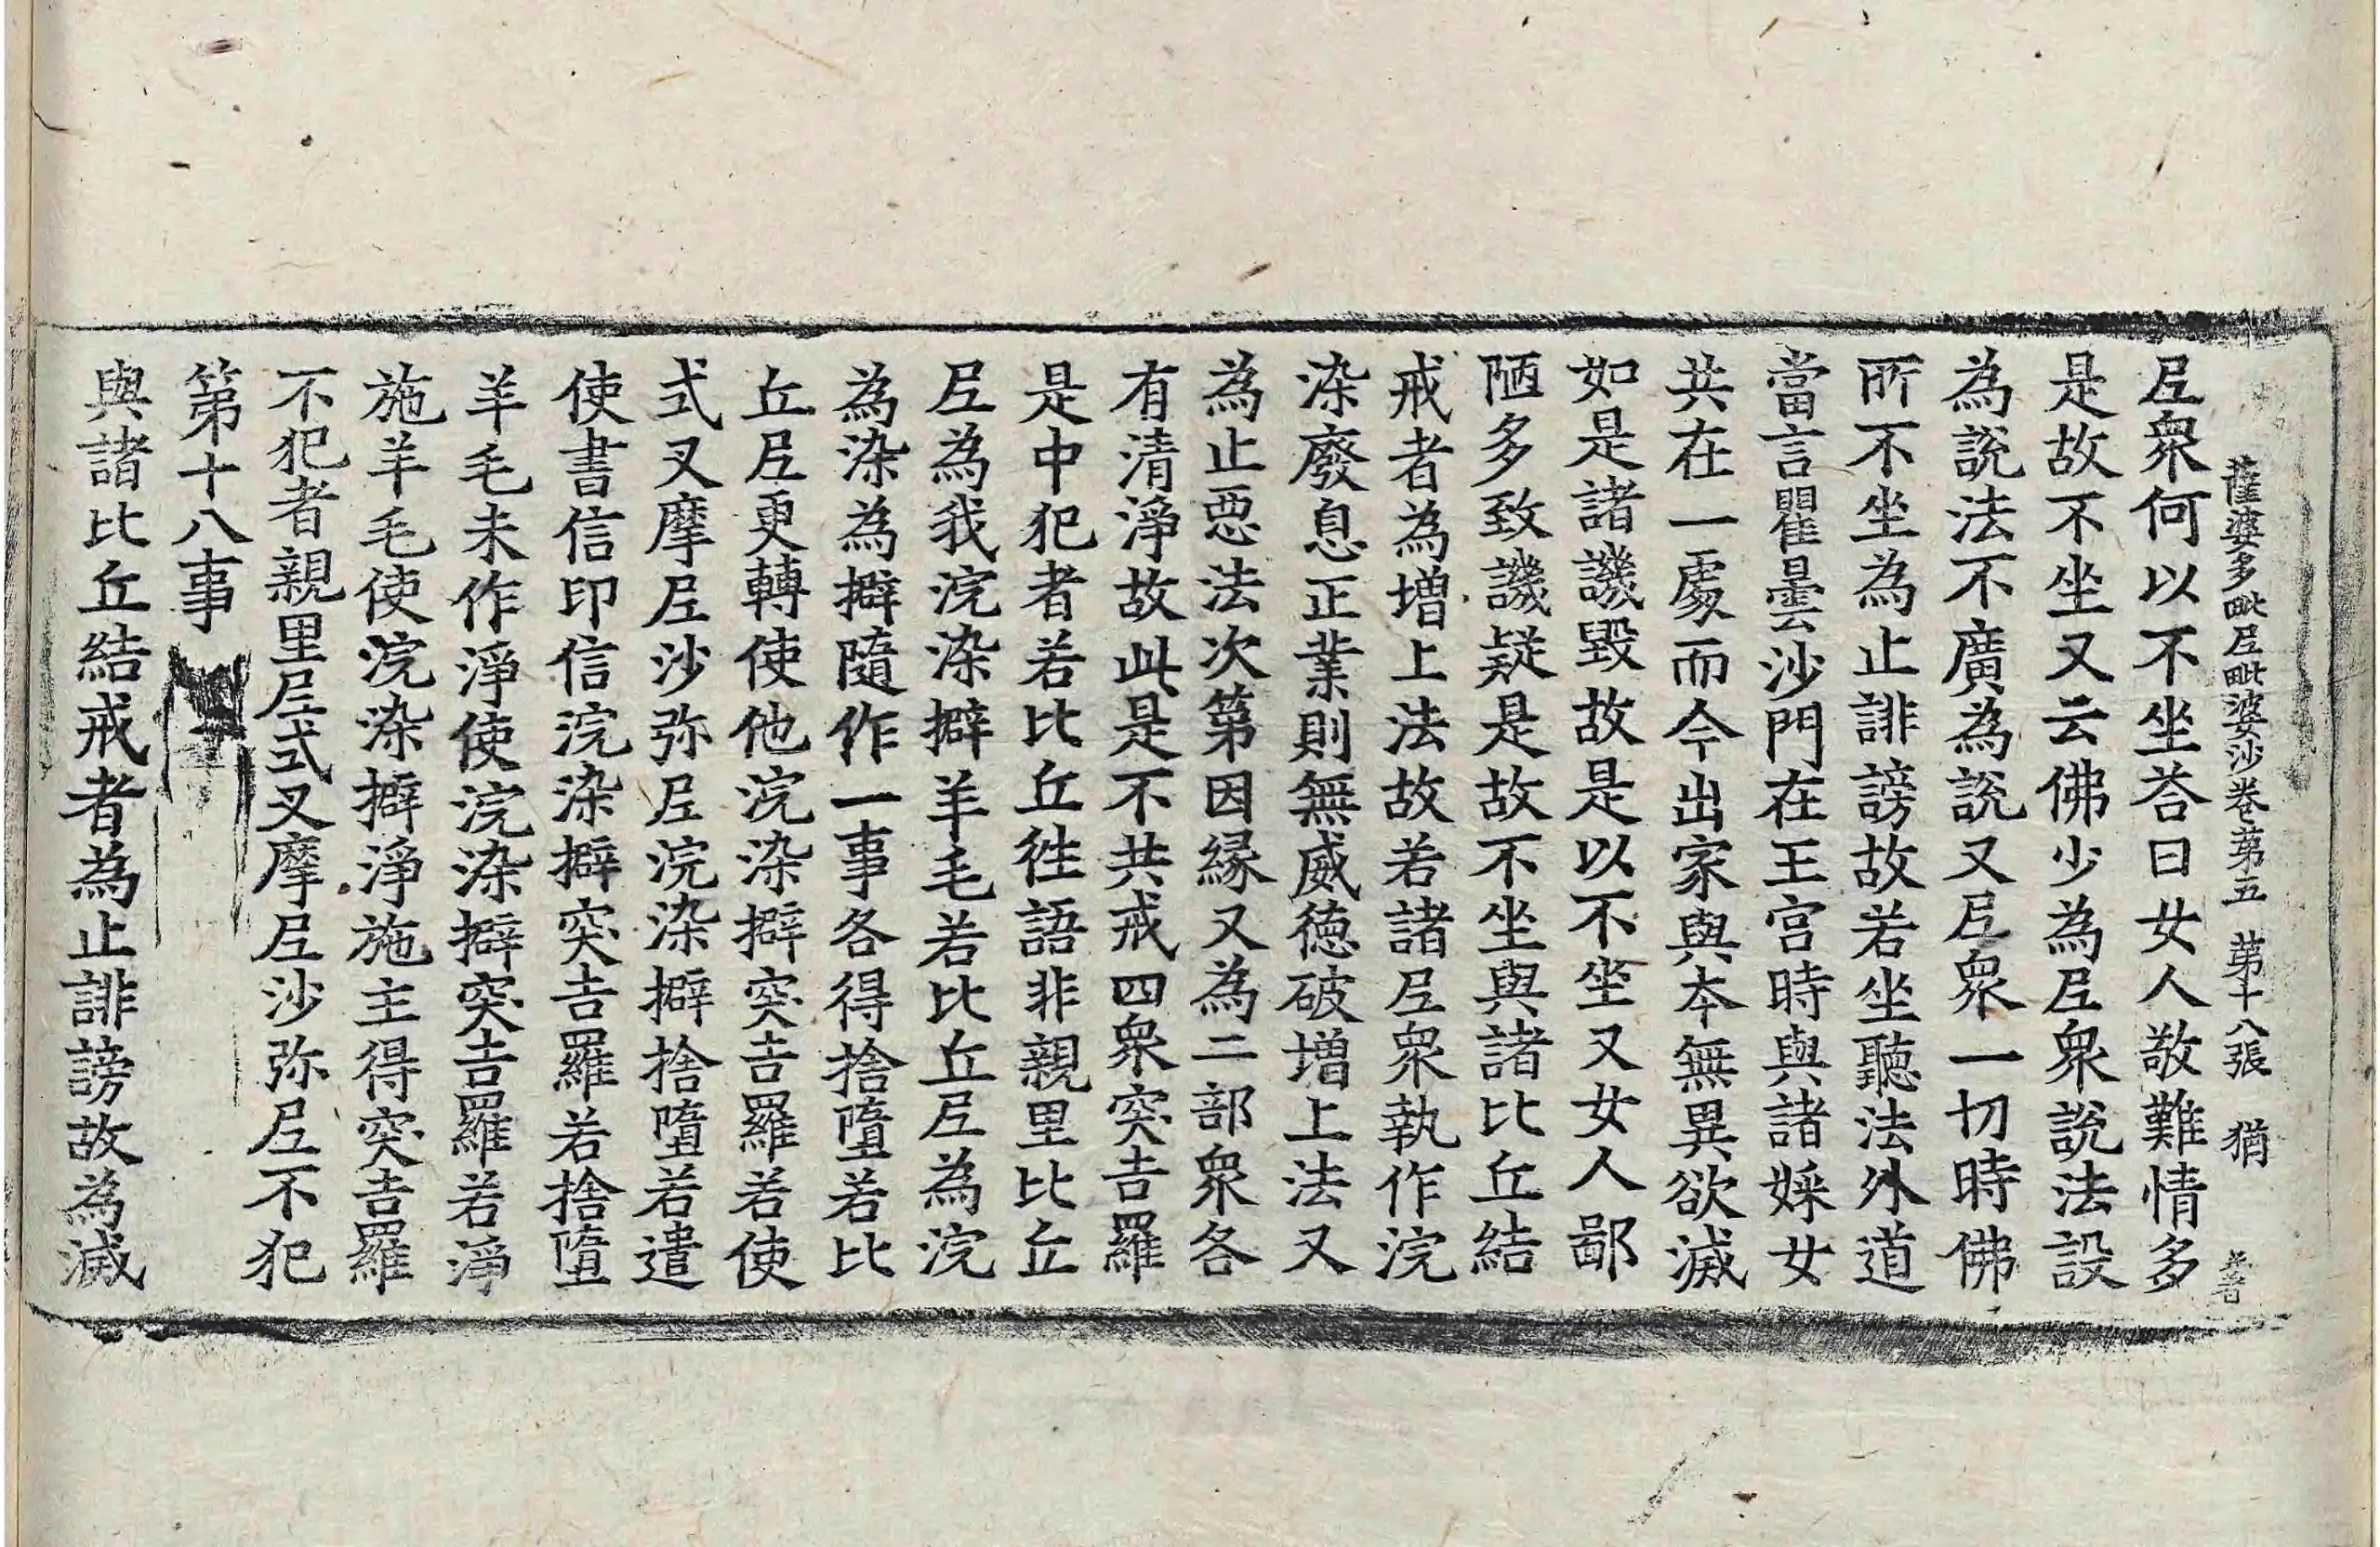 薩婆多毗𡰱毗婆沙卷苐五 苐十八張 猶
𡰱衆何以不坐荅曰女人敬難情多
是故不坐又云佛少為𡰱衆說法設
為說法不廣為說又𡰱衆一切時佛
所不坐為止誹謗故若坐聽法外道
當言瞿曇沙門在王宮時與諸婇女
共在一處而今出家與夲無異欲滅
如是諸譏毀故是以不坐又女人鄙
陋多致譏疑是故不坐與諸比丘結
戒者為增上法故若諸𡰱衆執作浣
染廢息正業則無威德破增上法又
為止惡法次第因緣又為二部衆各
有清淨故此是不共戒四衆突吉羅
是中犯者若比丘徃語非親里比丘
𡰱為我浣染擗羊毛若比丘𡰱為浣
為染為擗隨作一事各得捨墮若比
丘𡰱更轉使他浣染擗突吉羅若使
式叉摩𡰱沙弥𡰱浣染擗捨墮若遣
使書信印信浣染擗突吉羅若捨墮
羊毛未作淨使浣染擗突吉羅若淨
施羊毛使浣染擗淨施主得突吉羅
不犯者親里𡰱式叉摩𡰱沙弥𡰱不犯
第十八事
與諸比丘結戒者為止誹謗故為滅